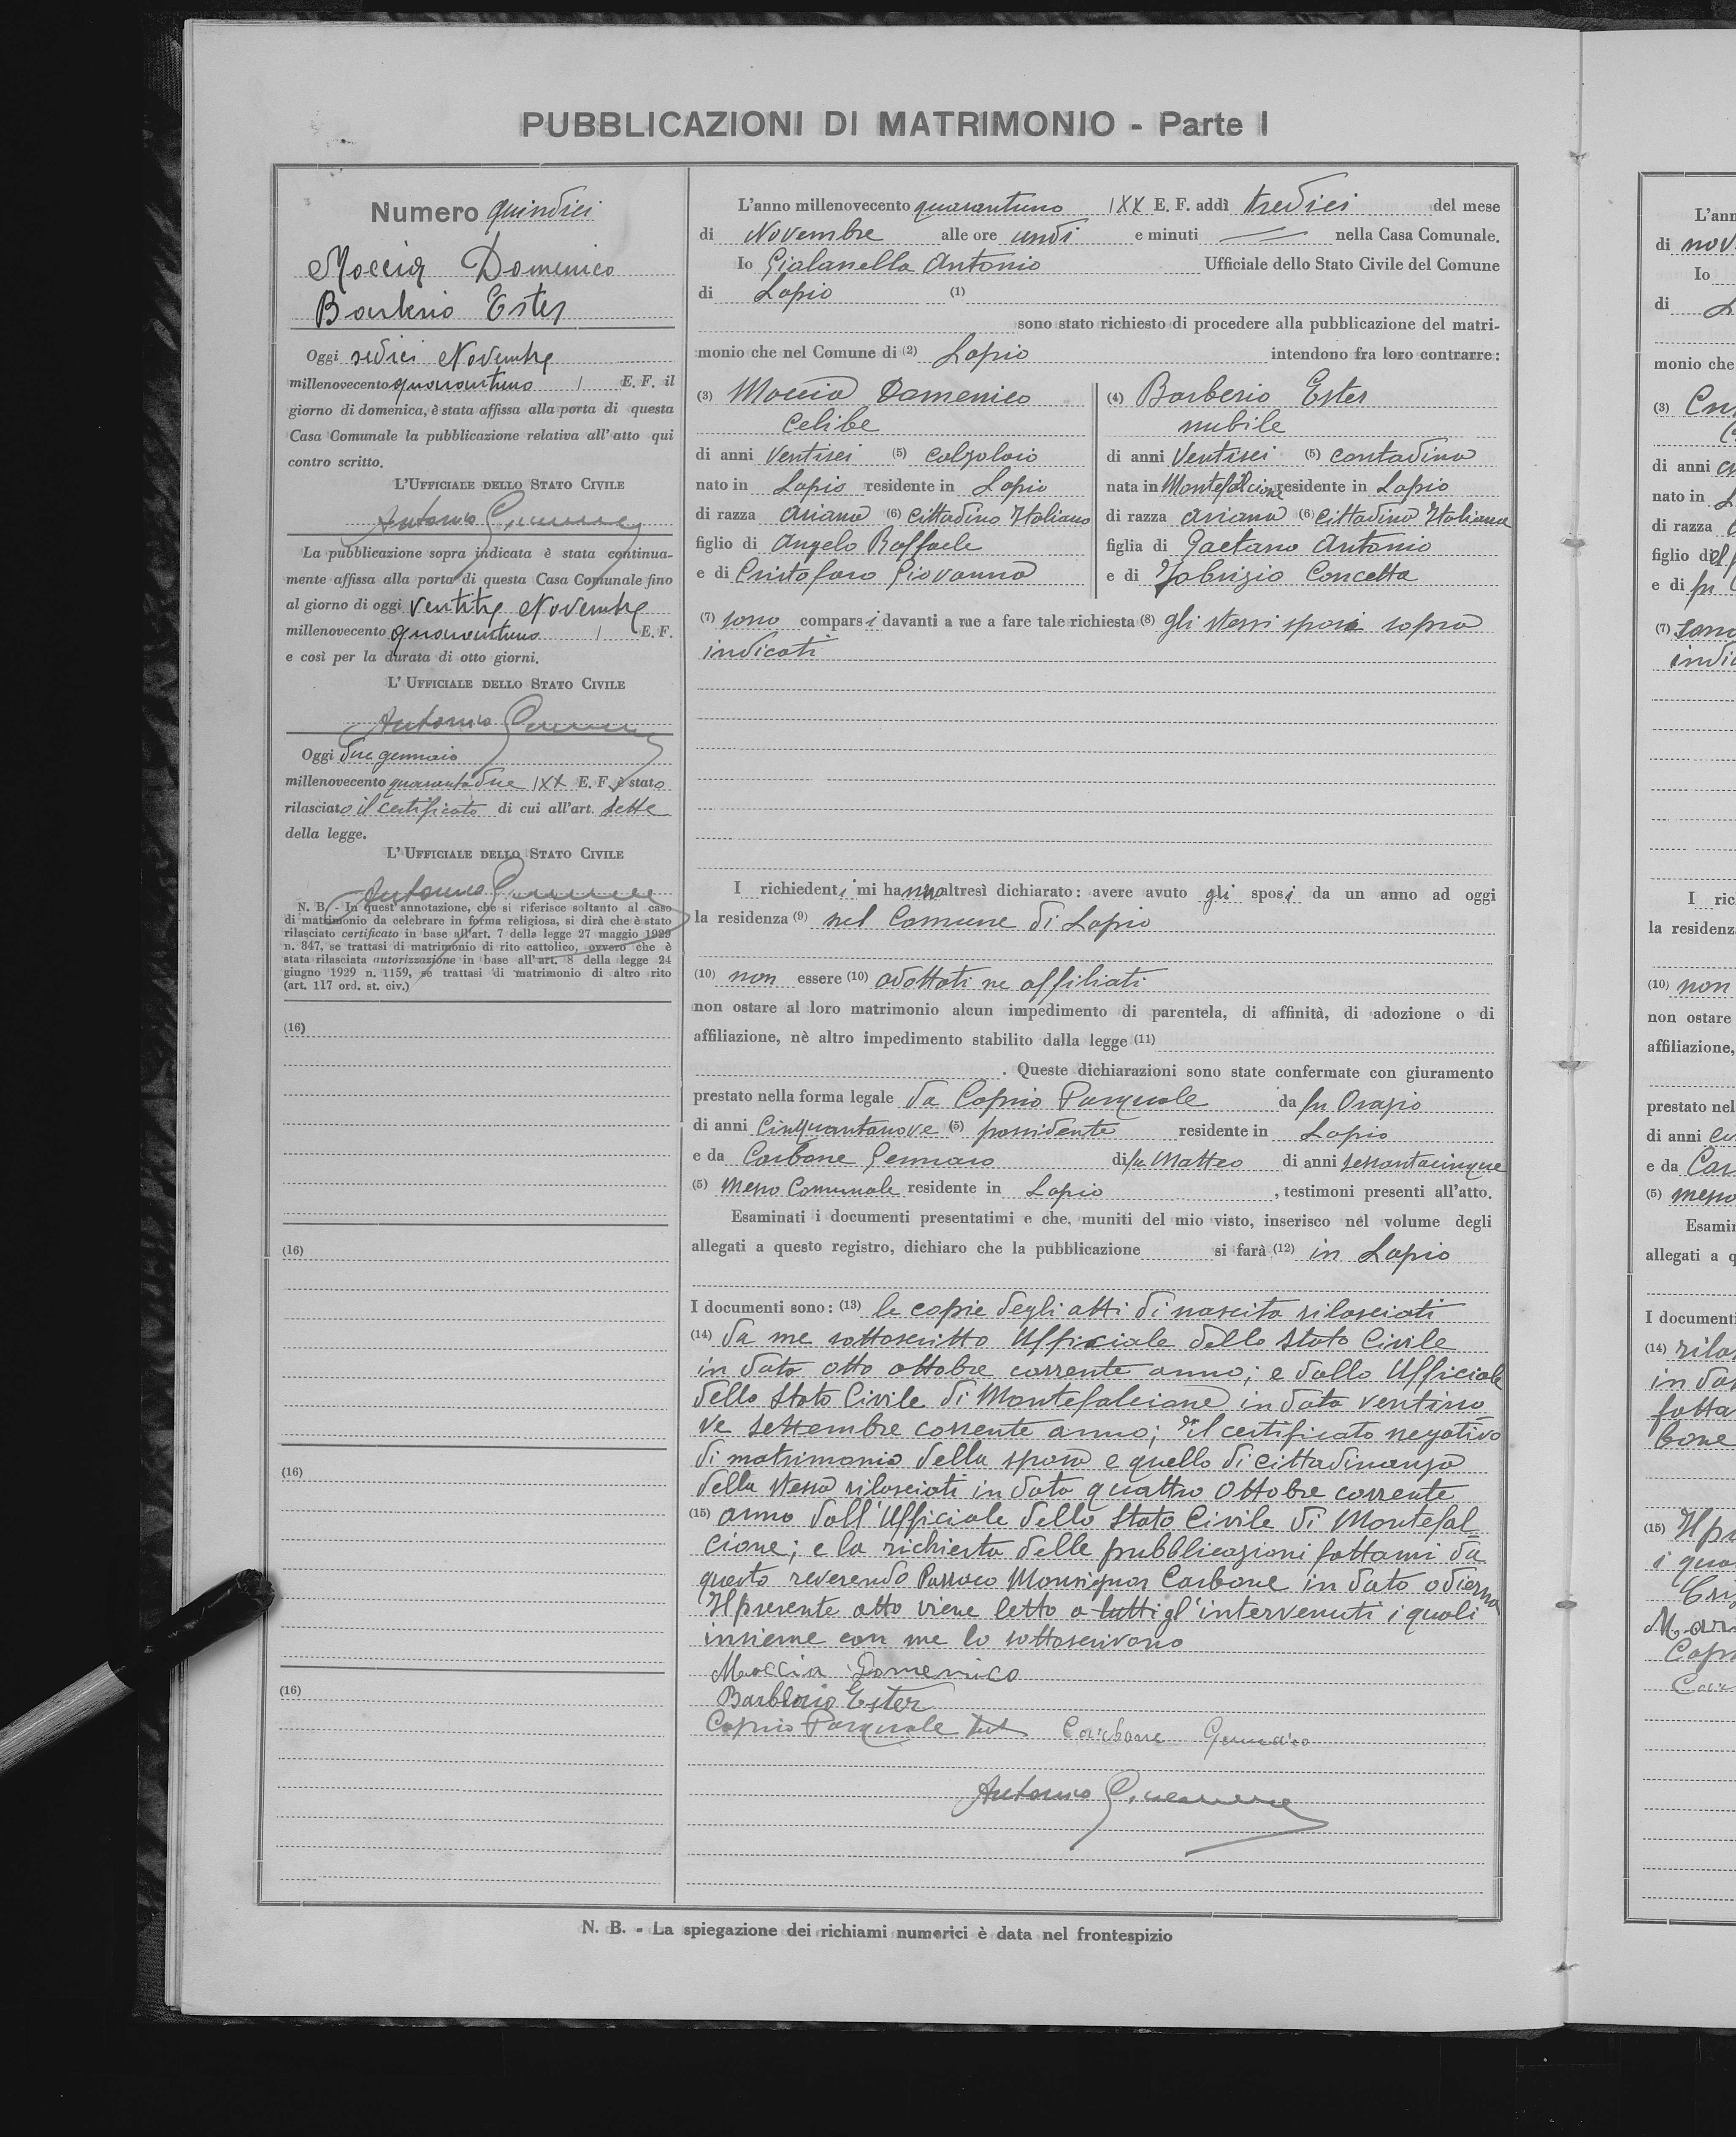 PUBBLICAZIONI DI MATRIMONIO - Parte I
Numero quindici
Moccia Domenico
Barberio Ester
Oggi sedici Novembre
millenovecento quarantuno / E. F. il
giorno di domenica, è stata affissa alla porta di questa
Casa Comunale la pubblicazione relativa all'atto qui
contro scritto.
L'UFFICIALE DELLO STATO CIVILE
Antonio
La pubblicazione sopra indicata è stata continua-
mente affissa alla porta di questa Casa Comunale fino
al giorno di oggi ventitre Novembre
millenovecento quarantuno / E. F.
e così per la durata di otto giorni.
L'UFFICIALE DELLO STATO CIVILE
Antonio
Oggi due gennaio
millenovecento quarantadue IXX E. F. è stato
rilasciato il certificato di cui all'art. sette
della legge.
L'UFFICIALE DELLO STATO CIVILE
Antonio
N. B. - In quest'annotazione, che si riferisce soltanto al caso
di matrimonio da celebrare in forma religiosa, si dirà che è stato
rilasciato certificato in base all'art. 7 della legge 27 maggio 1929
n. 847, se trattasi di matrimonio di rito cattolico, ovvero che è
stata rilasciata autorizzazione in base all'art. 8 della legge 24
giugno 1929 n. 1159, se trattasi di matrimonio di altro rito
(art. 117 ord. st. civ.)
(16)
(16)
(16)
(16)
L'anno millenovecento quarantuno IXX E. F. addì tredici del mese
di Novembre alle ore undi e minuti // nella Casa Comunale.
Io Gialanella Antonio Ufficiale dello Stato Civile del Comune
di Lapio (1)
sono stato richiesto di procedere alla pubblicazione del matri-
monio che nel Comune di (2) Lapio intendono fra loro contrarre:
(3) Moccia Domenico
Celibe
di anni Ventisei (5) Calzolaio
nato in Lapio residente in Lapio
di razza ariana (6) Cittadino Italiano
figlio di Angelo Raffaele
e di Cristofaro Giovanna
(4) Barberio Ester
nubile
di anni Ventisei (5) contadina
nata in Montefalcione residente in Lapio
di razza ariana (6) Cittadina Italiana
figlia di Gaetano Antonio
e di Fabrizio Concetta
(7) sono comparsi davanti a me a fare tale richiesta (8) gli stessi sposi sopra
indicati
I richiedenti mi hanno altresì dichiarato: avere avuto gli sposi da un anno ad oggi
la residenza (9) nel Comune di Lapio
(10) non essere (10) adottati ne affiliati
non ostare al loro matrimonio alcun impedimento di parentela, di affinità, di adozione o di
affiliazione, nè altro impedimento stabilito dalla legge (11)
. Queste dichiarazioni sono state confermate con giuramento
prestato nella forma legale da Caprio Pasquale da fu Orazio
di anni Cinquantanove (5) possidente residente in Lapio
e da Carbone Gennaro di fu Matteo di anni sessantacinque
(5) messo Comunale residente in Lapio , testimoni presenti all'atto.
Esaminati i documenti presentatimi e che, muniti del mio visto, inserisco nel volume degli
allegati a questo registro, dichiaro che la pubblicazione si farà (12) in Lapio
I documenti sono: (13) le copie degli atti di nascita rilasciati
(14) da me sottoscritto Ufficiale dello Stato Civile
in data otto ottobre corrente anno; e dallo Ufficiale
dello Stato Civile di Montefalcione in data ventino-
ve settembre corrente anno; il certificato negativo
di matrimonio della sposa e quello di cittadinanza
della stessa rilasciati in data quattro ottobre corrente
(15) anno dall'Ufficiale dello Stato Civile di Montefal-
cione; e la richiesta delle pubblicazioni fattami da
questo reverendo Parroco Monsignor Carbone in data odierna
Il presente atto viene letto a tutti gl'intervenuti i quali
insieme con me lo sottoscrivono
Moccia Domenico
Barberio Ester
Caprio Pasquale test Carbone Gennaro
Antonio
N. B. - La spiegazione dei richiami numerici è data nel frontespizio
L'ann
di nov
Io
di L
monio che
(3)
di anni
nato in L
di razza
figlio di
e di fu
(7) sono
indic
I ric
la residenz
(10) non
non ostare
affiliazione,
prestato nel
di anni
e da Car
(5) messo
Esamin
allegati a q
I documenti
(14) rilas
in dat
fatta
bone
(15) Il pr
i qua